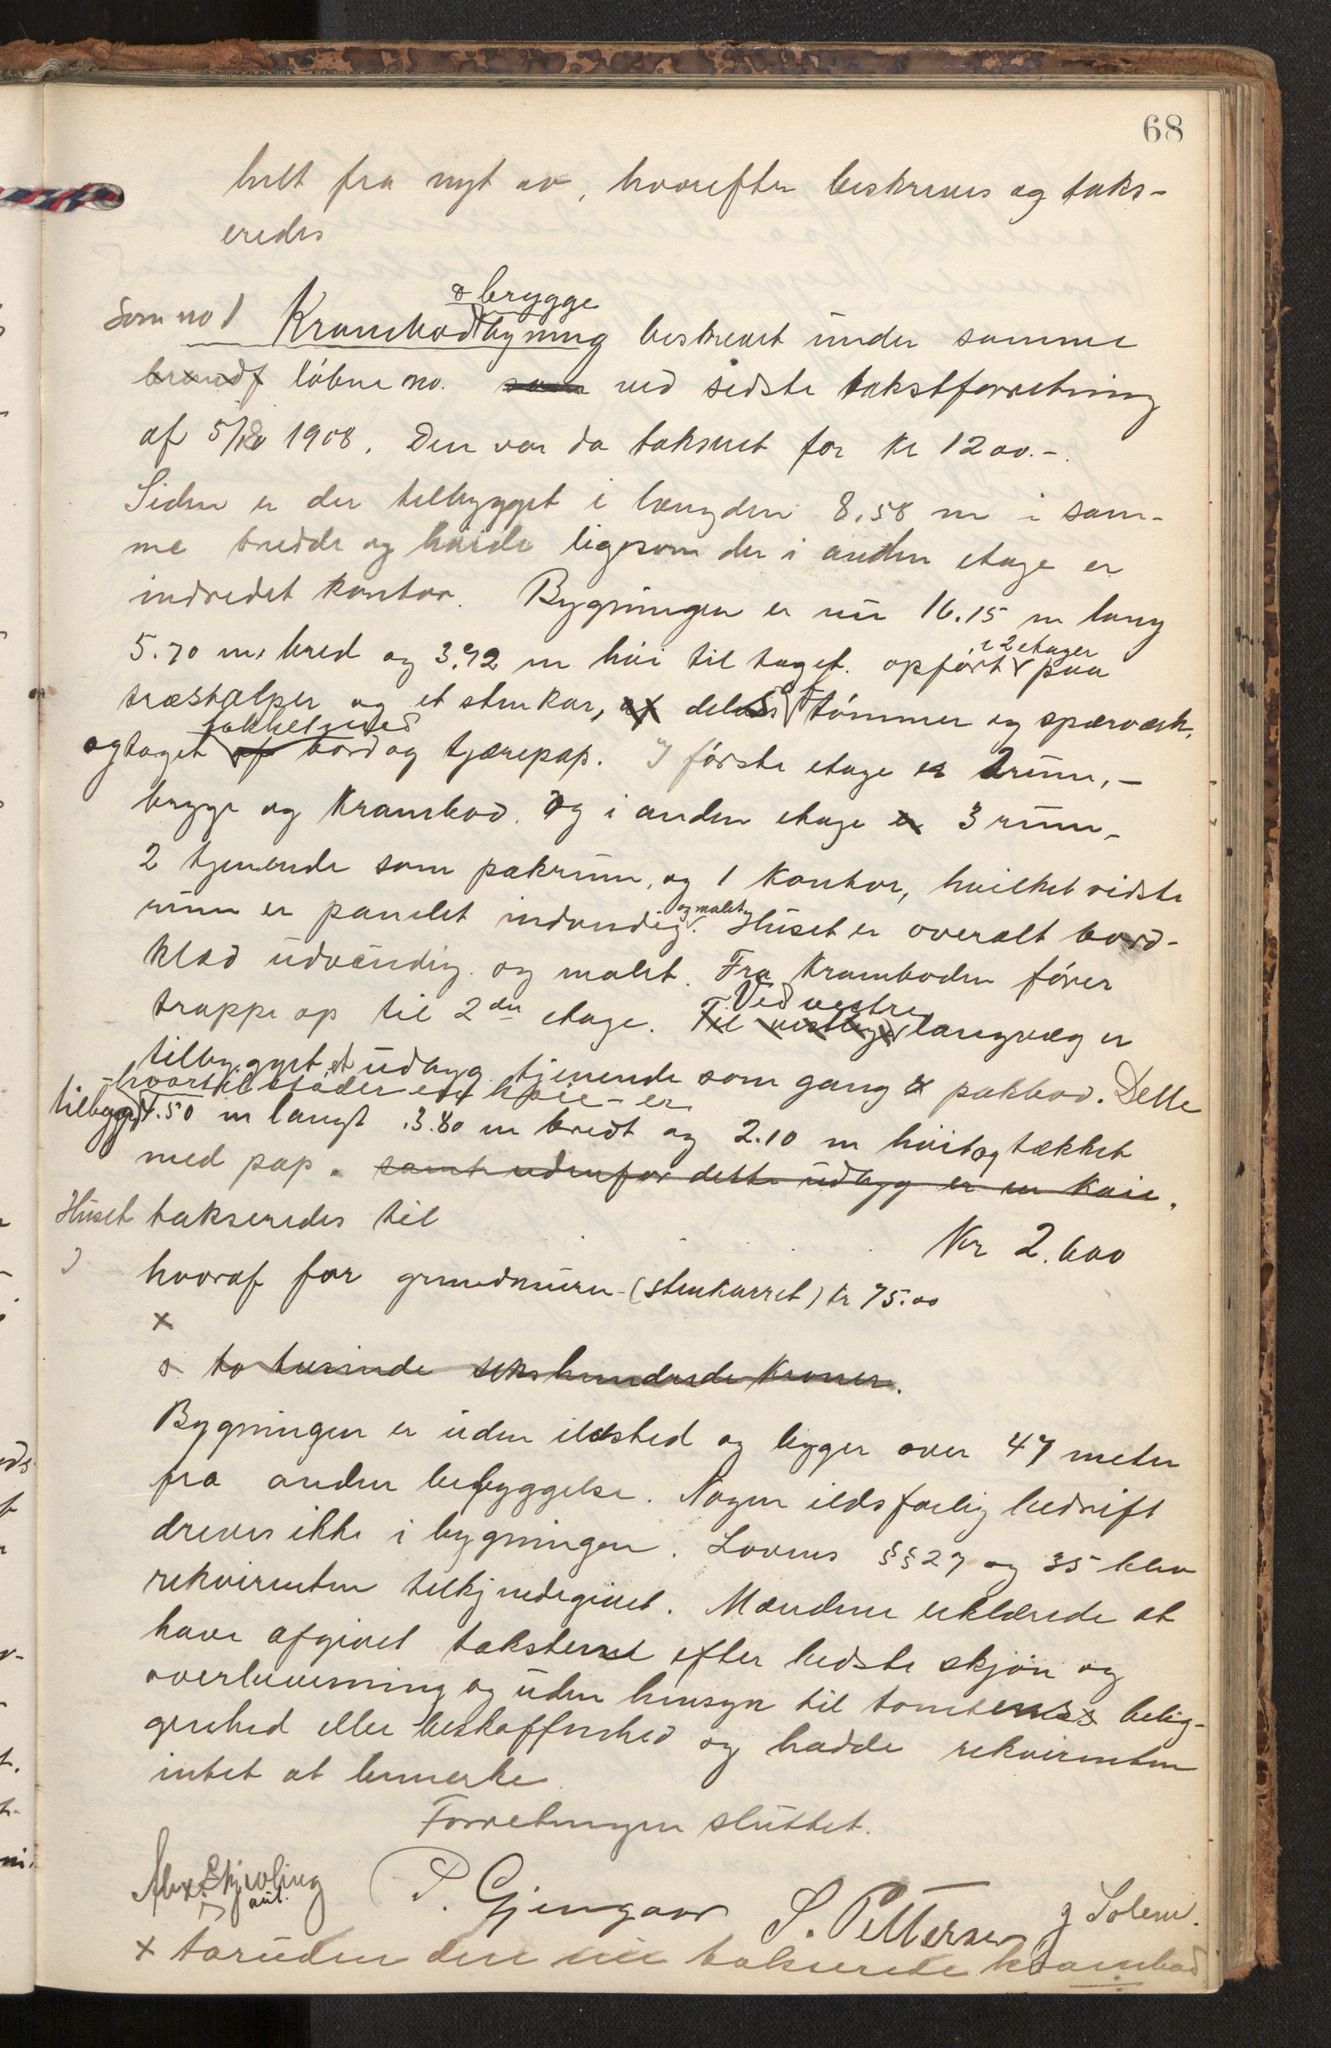 68
helt fra nyt av, hvorefter beskreves og taks-
eredes
& brygge
Som no 1 Krambodbygning beskrevet under samme
brandf löbne no. som ved sidste takstforretning
af 5/10 1908. Den var da takseret for kr 1200.-.
Siden er der tilbygget i længden 8,58 m i sam-
me bredde og høide ligesom der i anden etage er
indredet kontor. Bygningen er nu 16.15 m lang
i 2 etager
5.70 m. bred og 3.92 m høi til taget. opført paa
træstolper og et stenkar, af delvis af tömmer og spærværk,
takket med
og taget af bord og tjærepap. I første etage er 2 rum,-
brygge og Krambod. Og i anden etage er 3 rum,
2 tjenende som pakrum, og 1 Kontor, hvilket sidste
og malet
rum er panelet indvendig. Huset er overalt bord-
klæd udvendig og malet. Fra Kramboden fører
Ved vestre
trappe op til 2den etage. Til langvæg er
tilbygget et udbyg tjenende som gang & pakbod. Dette
-hvortil støder en kaie- er
tilbygg 4.50 m langt 3.80 m bredt og 2.10 m höit og tækket
med pap. samt udenfor dette udbyg er en kaie.
Huset takseredes til
Kr 2.600
hvoraf for grundmuren (stenkarret) kr 75.00
x
to tusinde sekshundrede kroner.
Bygningen er uden ildsted og ligger over 47 meter
fra anden bebyggelse. Nogen ildsfarlig bedrift
drives ikke i bygningen. Lovens §§27 og 35 blev
rekvirenten tilkjendegivet. Mændene erklærede at
have afgivet taksten efter bedste skjön og
overbevisning og uden hensyn til tomtens belig-
genhed eller beskaffenhed og hadde rekvirenten
intet at bemerke
Forretningen sluttet.
P. Gjengaar S. Pettersen J Solem.
x foruden den nu takserede krambod